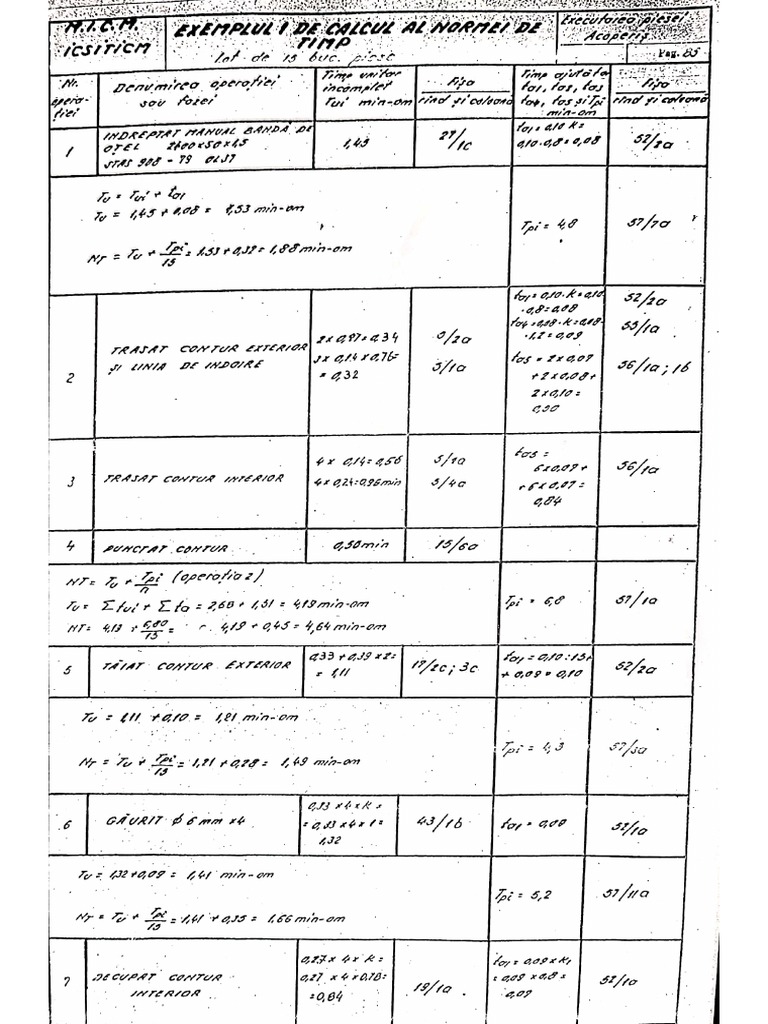 M.I.C.M.
ICSITICM
EXEMPLUL I DE CALCUL AL NORMEI DE
TIMP
Lot de 15 buc. piese
Executarea piesei
Acoperiș
Pag. 85
Nr. operației
Denumirea operației
sau fazei
Timp unitar
incomplet
Tui min-om
Fișa
rînd și coloană
Timp ajutător
ta1, ta2, ta3
ta4, ta5 și Tpi
min-om
Fișa
rînd și coloană
1
INDREPTAT MANUAL BANDĂ DE
OȚEL 2400x50x4,5
STAS 908-79 OL37
1,45
27/1c
ta1 = 0,10 K =
0,10·0,8 = 0,08
52/2a
Tu = Tui + ta1
Tu = 1,45 + 0,08 = 1,53 min-om
NT = Tu + Tpi/15 = 1,53 + 0,32 = 1,88 min-om
Tpi = 4,8
57/7a
2
TRASAT CONTUR EXTERIOR
ȘI LINIA DE INDOIRE
3 x 0,14 x 0,76 =
= 0,32
3/2a
3/1a
ta1 = 0,10·K = 0,10
·0,8 = 0,08
ta4 = 0,08·K = 0,08·
·1,2 = 0,09
ta5 = 2x0,07
+ 2x0,08 +
2x0,10 =
0,50
52/2a
55/1a
56/1a; 1b
3
TRASAT CONTUR INTERIOR
4 x 0,14 = 0,56
4 x 0,24 = 0,96 min
3/4a
ta5 =
6x0,07 +
+ 6x0,07 =
0,84
56/1a
4
PUNCTAT CONTUR
0,50 min
15/6a
NT = Tu + Tpi/n (operația 2)
Tu = Σtui + Σta = 2,68 + 1,51 = 4,19 min-om
NT = 4,19 + 6,80/15 = 4,19 + 0,45 = 4,64 min-om
Tpi = 6,8
57/1a
5
TĂIAT CONTUR EXTERIOR
0,33 + 0,39 x 2 =
= 1,11
17/2c; 3c
ta1 = 0,10:15+
+ 0,09 = 0,10
52/2a
Tu = 1,11 + 0,10 = 1,21 min-om
NT = Tu + Tpi/15 = 1,21 + 0,28 = 1,49 min-om
Tpi = 4,3
57/3a
6
GĂURIT ϕ 6 mm x4
0,33 x 4 x K =
= 0,33 x 4 x 1 =
1,32
43/1b
ta1 = 0,09
52/1a
Tu = 1,32 + 0,09 = 1,41 min-om
NT = Tu + Tpi/15 = 1,41 + 0,35 = 1,66 min-om
Tpi = 5,2
57/11a
7
DECUPAT CONTUR
INTERIOR
0,27 x 4 x K =
0,27 x 4 x 0,78 =
= 0,84
19/1a
ta1 = 0,09 x K1
= 0,09 x 0,8 =
0,09
52/1a